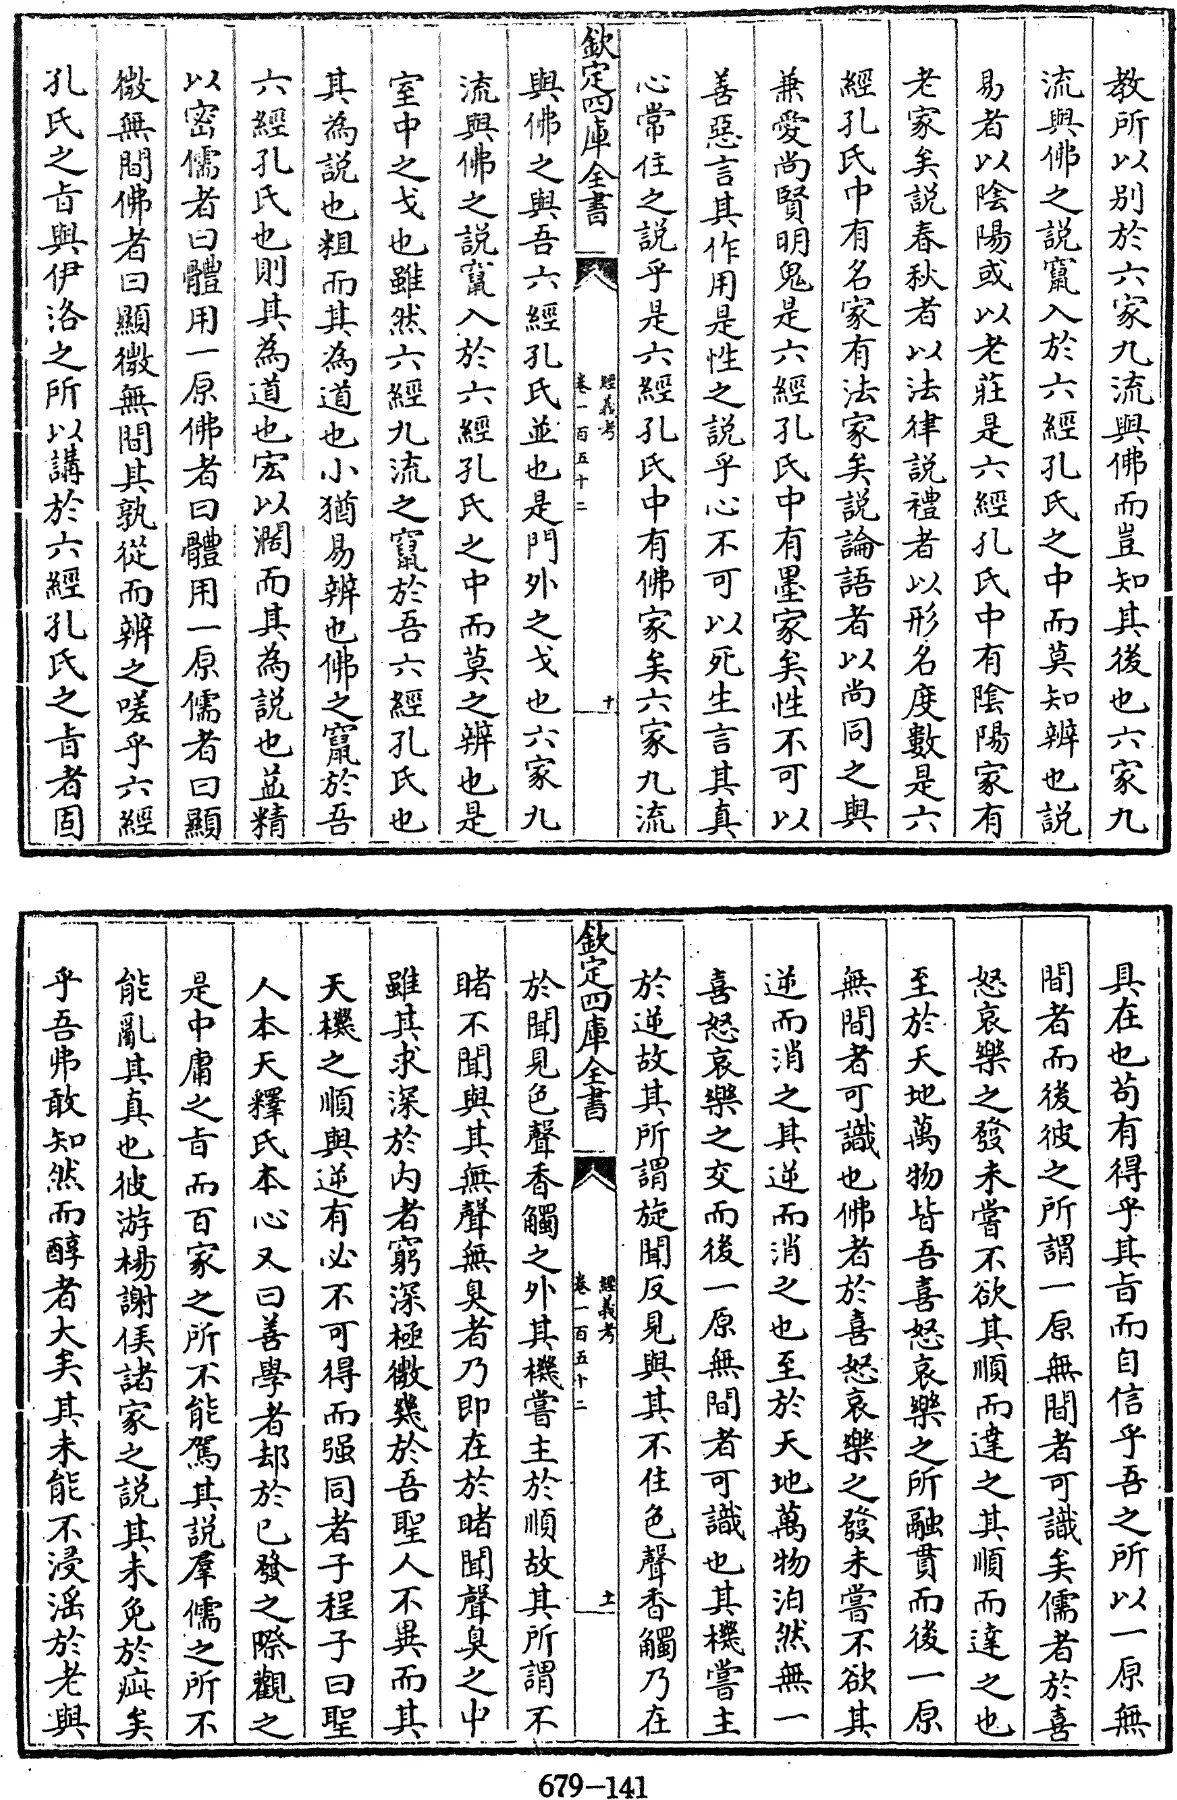 教所以别於六家九流與佛而豈知其後也六家九
流與佛之説竄入於六經孔氏之中而莫知辨也説
易者以陰陽或以老莊是六經孔氏中有陰陽家有
老家矣説春秋者以法律説禮者以形名度數是六
經孔氏中有名家有法家矣説論語者以尚同之與
兼愛尚賢明鬼是六經孔氏中有墨家矣性不可以
善惡言其作用是性之説乎心不可以死生言其真
心常住之説乎是六經孔氏中有佛家矣六家九流
欽定四庫全書
經義考
卷一百五十二
十
與佛之與吾六經孔氏並也是門外之戈也六家九
流與佛之説竄入於六經孔氏之中而莫之辨也是
室中之戈也雖然六經九流之竄於吾六經孔氏也
其為説也粗而其為道也小猶易辨也佛之竄於吾
六經孔氏也則其為道也宏以濶而其為説也益精
以密儒者曰體用一原佛者曰體用一原儒者曰顯
微無間佛者曰顯微無間其孰從而辨之嗟乎六經
孔氏之㫖與伊洛之所以講於六經孔氏之㫖者固
具在也苟有得乎其㫖而自信乎吾之所以一原無
間者而後彼之所謂一原無間者可識矣儒者於喜
怒哀樂之發未嘗不欲其順而達之其順而達之也
至於天地萬物皆吾喜怒哀樂之所融貫而後一原
無間者可識也佛者於喜怒哀樂之發未嘗不欲其
逆而消之其逆而消之也至於天地萬物泊然無一
喜怒哀樂之交而後一原無間者可識也其機嘗主
於逆故其所謂旋聞反見與其不住色聲香觸乃在
欽定四庫全書
經義考
卷一百五十二
十一
於聞見色聲香觸之外其機嘗主於順故其所謂不
睹不聞與其無聲無臭者乃即在於睹聞聲臭之中
雖其求深於内者窮深極微幾於吾聖人不異而其
天機之順與逆有必不可得而强同者子程子曰聖
人本天釋氏本心又曰善學者却於已發之際觀之
是中庸之㫖而百家之所不能駕其説羣儒之所不
能亂其真也彼游楊謝侯諸家之説其未免於疵矣
乎吾弗敢知然而醇者大矣其未能不浸淫於老與
679-141